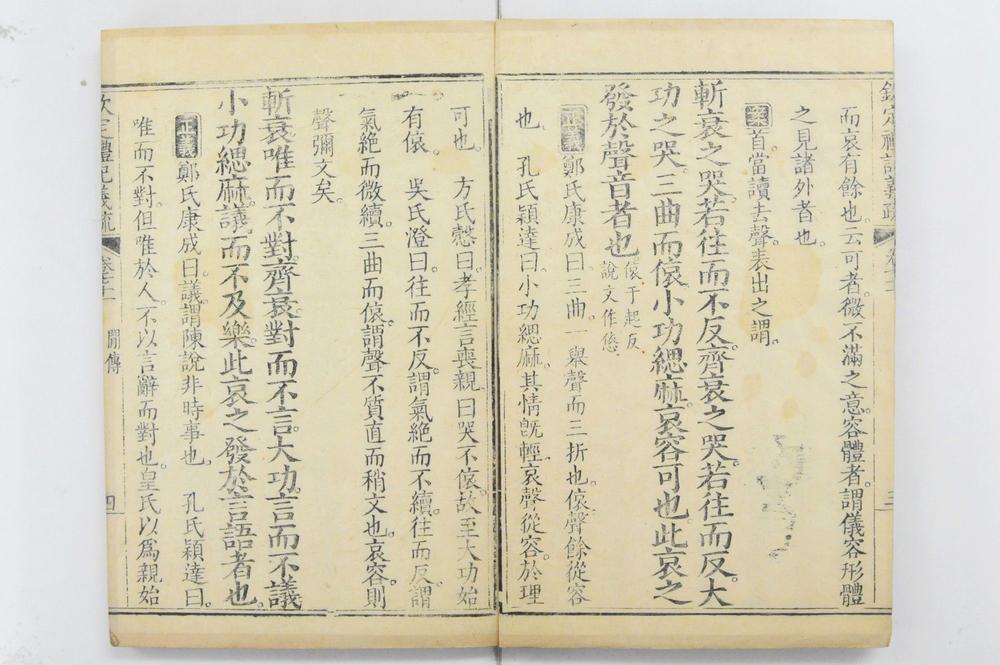 欽定禮記義疏
卷七十二
三
而哀有餘也。云可者。微不滿之意。容體者。謂儀容形體
之見諸外者也。
案首當讀去聲。表出之謂。
斬衰之哭。若往而不反。齊衰之哭。若往而反。大
功之哭。三曲而偯。小功緦麻。哀容可也。此哀之
發於聲音者也。
偯。於起反。
說文作㥋。
正義鄭氏康成曰。三曲。一舉聲而三折也。偯。聲餘從容
也。 孔氏穎達曰。小功緦麻。其情旣輕。哀聲從容。於理
可也。 方氏慤曰。孝經言喪親曰哭不偯。故至大功始
有偯。 吳氏澄曰。往而不反。謂氣絕而不續。往而反。謂
氣絕而微續。三曲而偯。謂聲不質直而稍文也。哀容。則
聲彌文矣。
斬衰唯而不對。齊衰對而不言。大功言而不議。
小功緦麻。議而不及樂。此哀之發於言語者也。
正義鄭氏康成曰。議。謂陳說非時事也。 孔氏穎達曰。
唯而不對。但唯於人。不以言辭而對也。皇氏以爲親始
欽定禮記義疏
卷七十二
閒傳
四